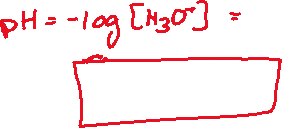 pH = -log [H₃O⁺] =